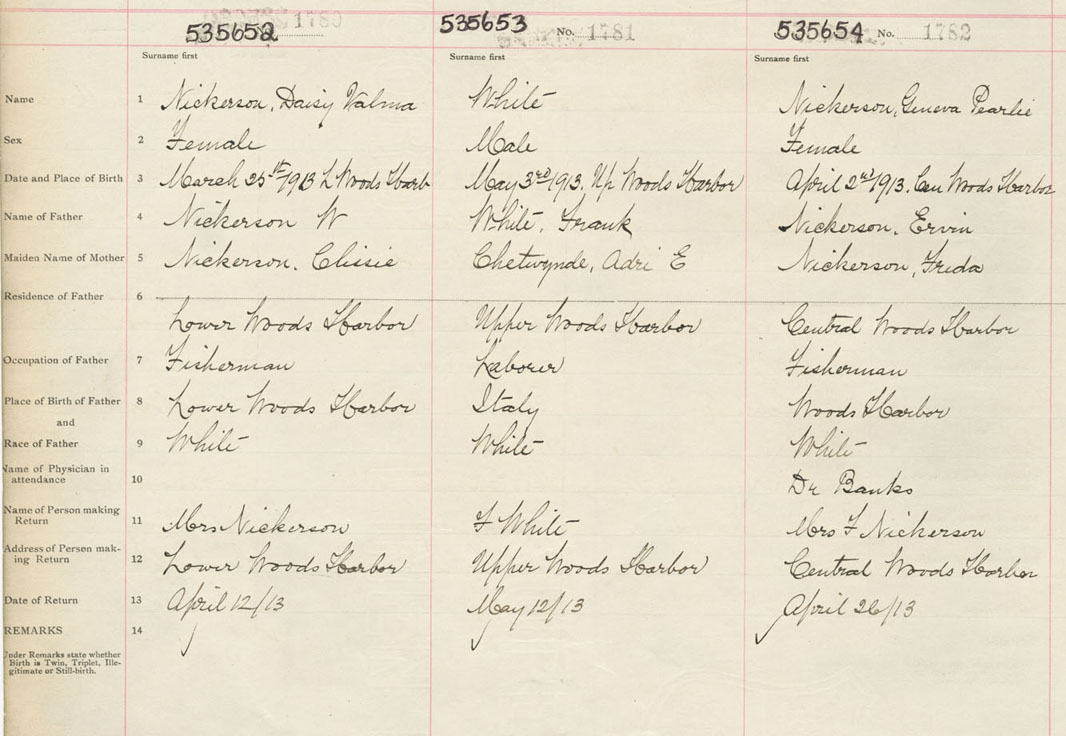 535652 1780 535653 No. 1781 535654 No. 1782
Surname first Surname first Surname first
Name 1 Nickerson, Daisy Valma White Nickerson, Geneva Pearlie
Sex 2 Female Male Female
Date and Place of Birth 3 March 25th/1913 L Woods Harb May 3rd/1913. Up Woods Harbor April 2nd/1913. Cen Woods Harbor
Name of Father 4 Nickerson W White. Frank Nickerson. Ervin
Maiden Name of Mother 5 Nickerson. Clissie Chetwynde, Adri E Nickerson, Freda
Residence of Father 6
Lower Woods Harbor Upper Woods Harbor Central Woods Harbor
Occupation of Father 7 Fisherman Laborer Fisherman
Place of Birth of Father 8 Lower Woods Harbor Italy Woods Harbor
and
Race of Father 9 White White White
Name of Physician in
attendance 10 Dr Banks
Name of Person making
Return 11 Mrs Nickerson F White Mrs F Nickerson
Address of Person mak-
ing Return 12 Lower Woods Harbor Upper Woods Harbor Central Woods Harbor
Date of Return 13 April 12/13 May 12/13 April 26/13
REMARKS 14
Under Remarks state whether
Birth is Twin, Triplet, Ille-
gitimate or Still-birth.